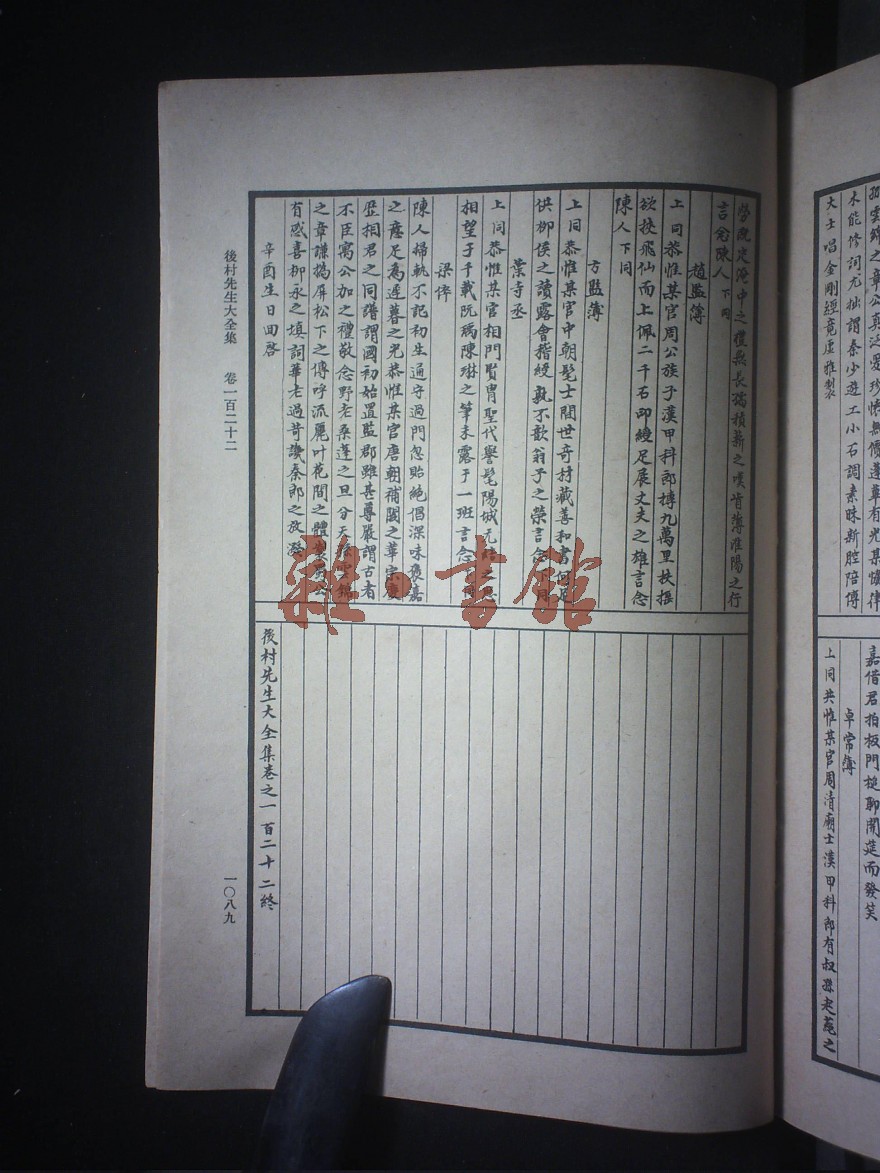 孫雲錦之章公真泛愛珍
木能修詞尤拙謂秦少遊工小石調素昧新腔陪傅
大士唱金剛經竟虛雅製
嘉借君拍板門槌聊開莚而發笑
卓常簿
上同共惟某官周清廟士漢甲科郎有叔孫
之禮無長孺積薪之嘆肯薄淮陽之行
言念陳人下同
趙監簿
上同恭惟某官周公族子漢甲科郎摶九萬里扶搖
欲挾飛仙而上佩二千石印綬足展丈夫之雄言念
陳人下同
方監簿
上同恭惟某官中朝髦士間世奇材藏善和書何
供柳侯之讀露會稽綬孰不歆翁子之榮言念下同
葉寺丞
上同恭惟某官相門賢胄聖代譽髦陽城元結之
相望于千載阮瑀陳琳之筆未露于一班言念下同
梁倅
陳人掃軌不記初生通守過門忽貽絶倡深味褒嘉
之意足為遲暮之光恭惟某官唐朝補闕之華宗慶
曆相君之同譜謂國初始置監郡雖甚尊嚴謂古者
不臣寓公加之禮敬念野老桑蓬之旦分天孫雲錦
之章謙撝屏松下之傳呼流麗叶花間之體製
有感喜柳永之填詞華老過苛譏秦郎之放潑
辛酉生日回啓
後村先生大全集卷之一百二十二終
後村先生大全集 卷一百二十二
一〇八九
雜·書館